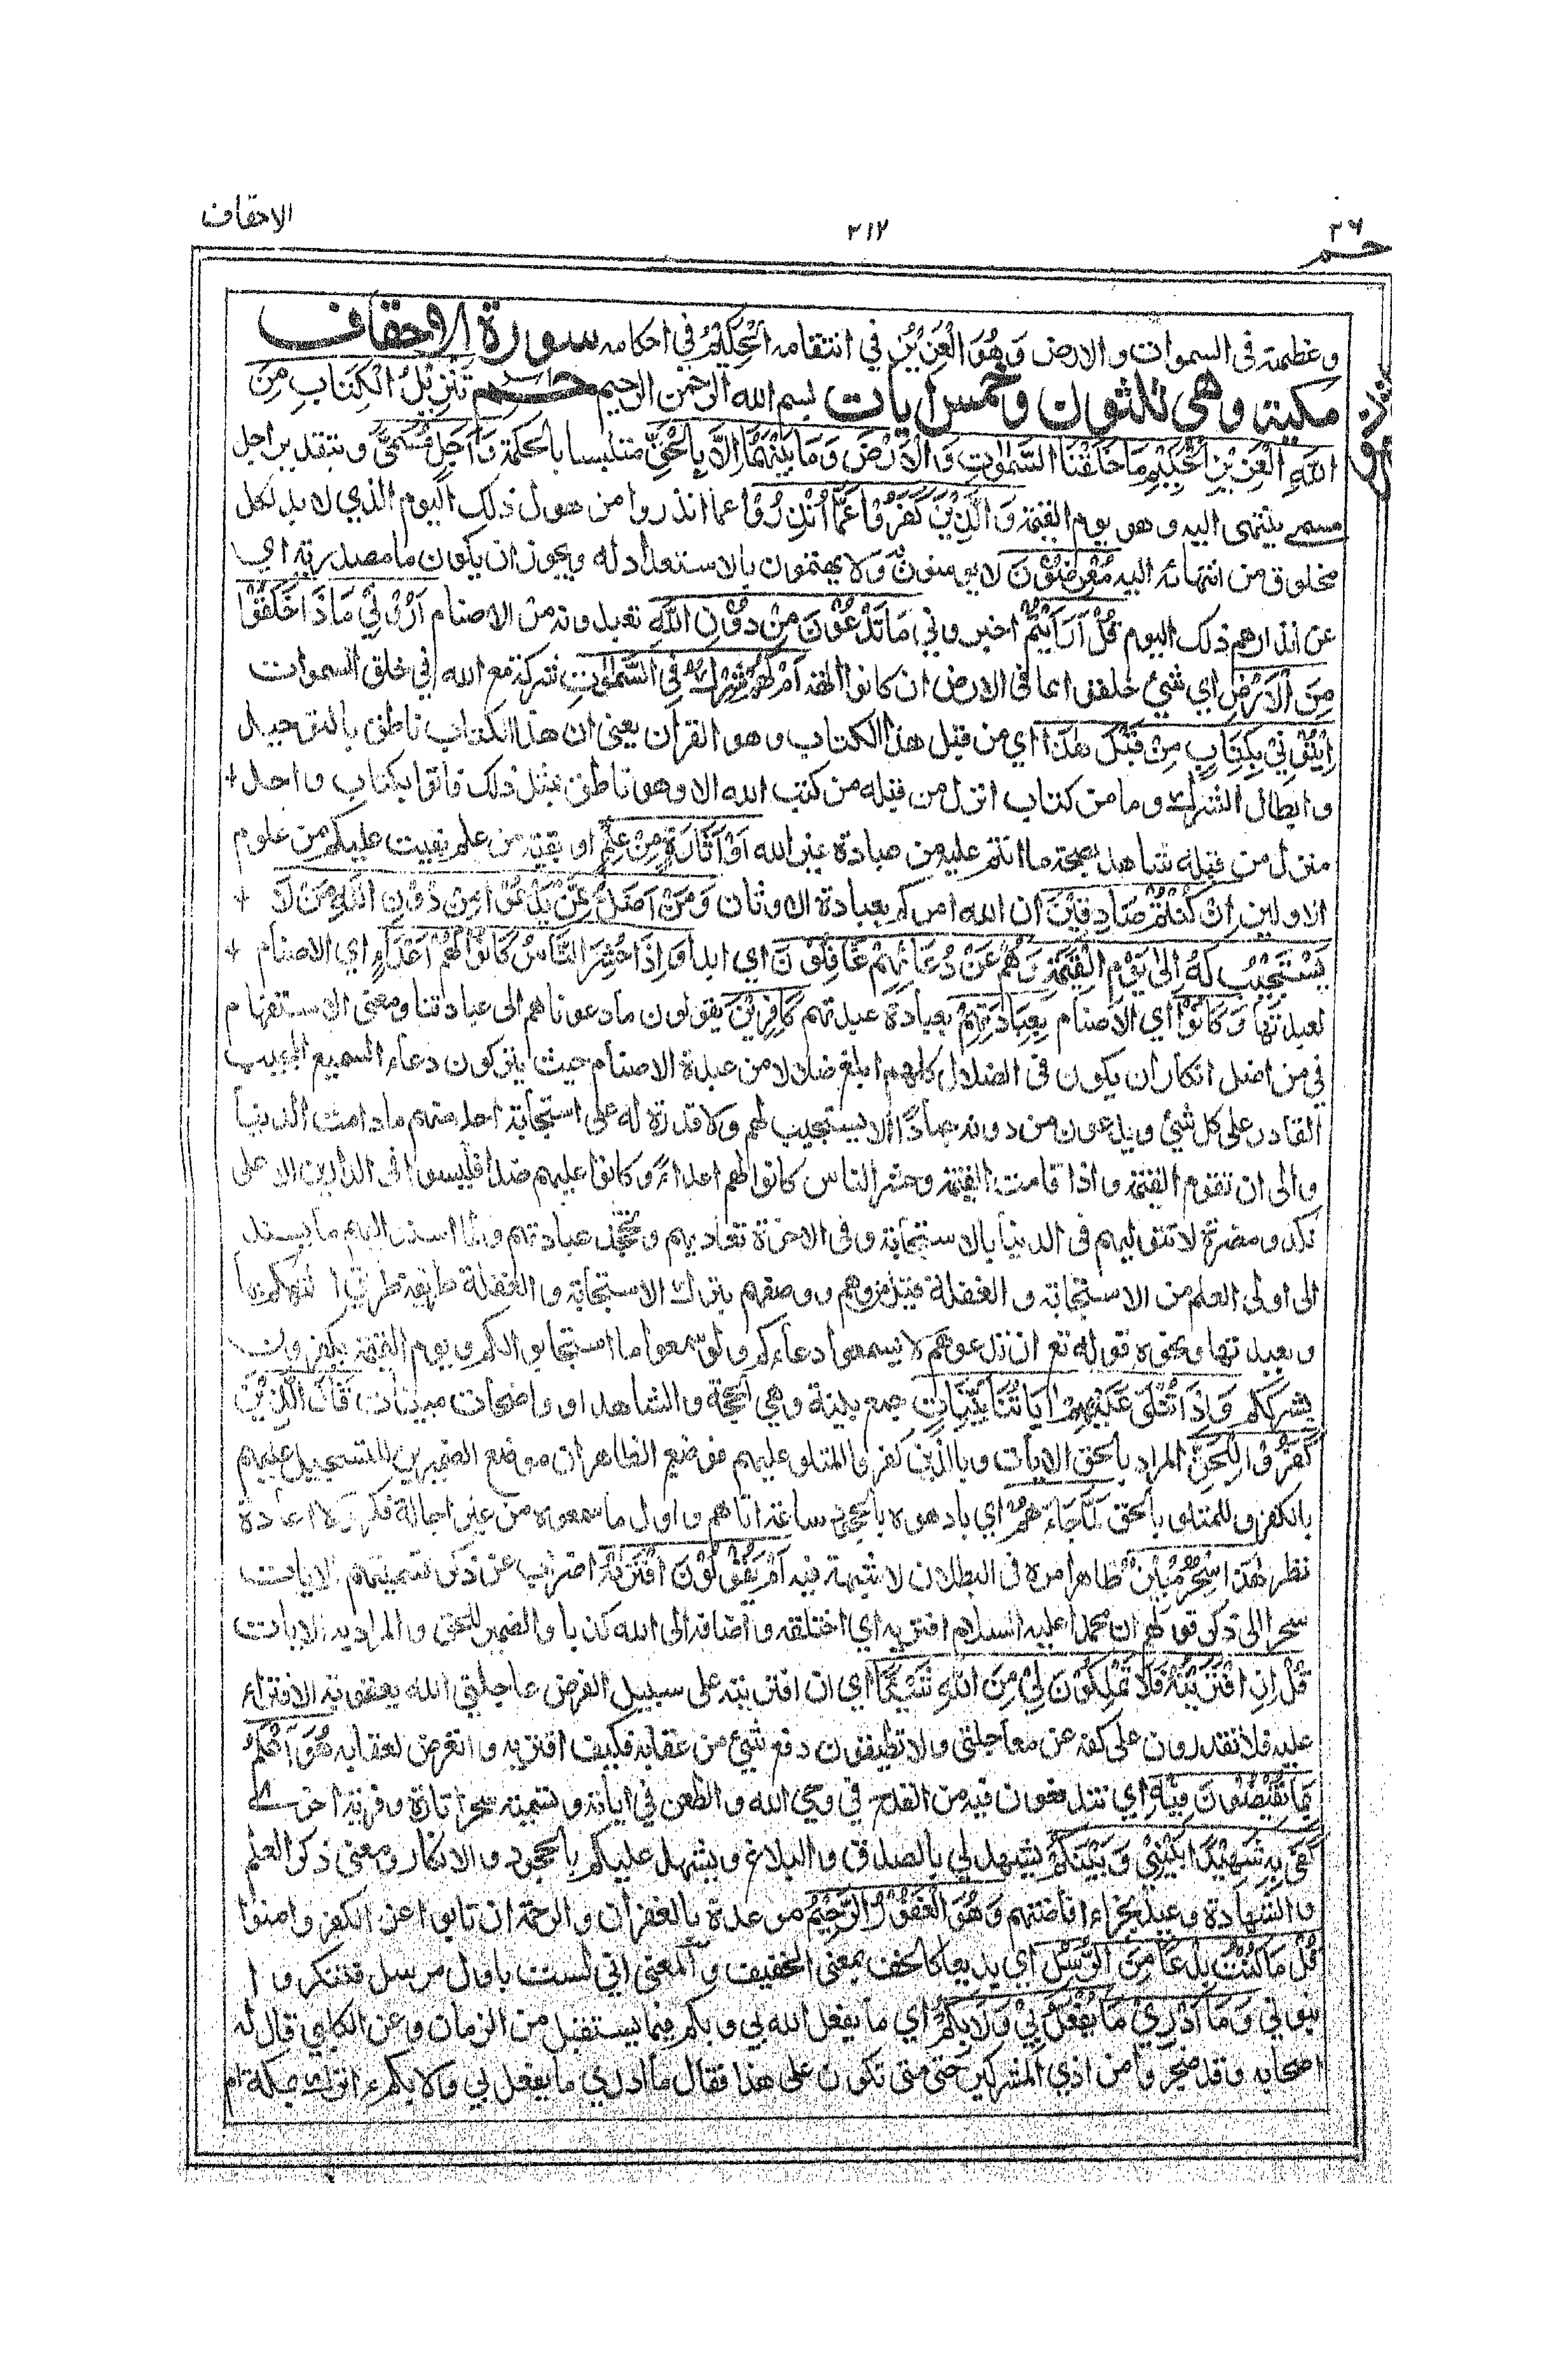 الاحقاف
٣١٢
٢٦
حم
وعظمته فى السموات والارض وَهُوَ الْعَزِيْزُ في انتقامه الْحَكِيْمُ في احكامه سورة الاحقاف
مكية وهى ثلثون وخمس ايات بسم الله الرحمن الرحيم حم تَنْزِيْلُ الْكِتَابِ مِنَ
اللهِ الْعَزِيْزِ الْحَكِيْمِ مَا خَلَقْنَا السَّمٰوٰتِ وَالْاَرْضَ وَمَا بَيْنَهُمَا اِلَّا بِالْحَقِّ متلبسا بالحكمة وَاَجَلٍ مُّسَمًّى وبتقدير اجل
مسمى ينتهى اليه وهو يوم القيمة وَالَّذِيْنَ كَفَرُوْا عَمَّا اُنْذِرُوْا عما انذروا من هول ذلك اليوم الذي لا بد لكل
مخلوق من انتهائه اليه مُعْرِضُوْنَ لا يومنون ولا يهتمون بالاستعداد له ويجوز ان يكون ما مصدرية اي
عن انذارهم ذلك اليوم قُلْ اَرَاَيْتُمْ اخبروني مَا تَدْعُوْنَ مِنْ دُوْنِ اللهِ تعبدونه من الاصنام اَرُوْنِيْ مَا ذَا خَلَقُوْا
مِنَ الْاَرْضِ اي شيئ خلقوا مما فى الارض ان كانوا الهة اَمْ لَهُمْ شِرْكٌ فِى السَّمٰوٰتِ شركة مع الله في خلق السموات
اِيْتُوْنِيْ بِكِتَابٍ مِنْ قَبْلِ هٰذَا اي من قبل هذا الكتاب وهو القران يعنى ان هذا الكتاب ناطق بالتوحيد
وابطال الشرك وما من كتاب انزل من قبله من كتب الله الا وهو ناطق بمثل ذلك فاتوا بكتاب واحد
منزل من قبله شاهد بصحة ما انتم عليه من عبادة غير الله اَوْ اَثَارَةٍ مِنْ عِلْمٍ او بقية من علم بقيت عليكم من علوم
الاولين اِنْ كُنْتُمْ صَادِقِيْنَ ان الله امركم بعبادة الاوثان وَمَنْ اَضَلُّ مِمَّنْ يَدْعُوْا مِنْ دُوْنِ اللهِ مَنْ لَا
يَسْتَجِيْبُ لَهُ اِلٰى يَوْمِ الْقِيٰمَةِ وَهُمْ عَنْ دُعَائِهِمْ غَافِلُوْنَ اي ابدا وَاِذَا حُشِرَ النَّاسُ كَانُوْا لَهُمْ اَعْدَاءً اي الاصنام
لعبدتها وَكَانُوْا اي الاصنام بِعِبَادَتِهِمْ بعبادة عبدتهم كَافِرِيْنَ يقولون ما دعوناهم الى عبادتنا ومعنى الاستفهام
في من اضل انكار ان يكون فى الضلال كلهم ابلغ ضلالا من عبدة الاصنام حيث يتركون دعاء السميع المجيب
القادر على كل شيئ ويدعون من دونه جمادا لا يستجيب لهم ولا قدرة له على استجابة احد منهم ما دامت الدنيا
والى ان تقوم القيمة واذا قامت القيمة وحشر الناس كانوا لهم اعداء وكانوا عليهم ضدا فليسوا فى الدارين الا على
نكد ومضرة لا تتوليهم فى الدنيا بالاستجابة وفى الاخرة تعاديهم وتجحد عبادتهم ولما اسند اليهم ما يسند
الى اولى العلم من الاستجابة والغفلة قيل من وهم ووصفهم بترك الاستجابة والغفلة طريقه طريق التهكم بها
وبعبدتها ونحوه قوله تع ان تدعوهم لا يسمعوا دعاءكم ولو سمعوا ما استجابوا لكم ويوم القيمة يكفرون
بشرككم وَاِذَا تُتْلٰى عَلَيْهِمْ اٰيَاتُنَا بَيِّنَاتٍ جمع بينة وهي الحجة والشاهد او واضحات مبينات قَالَ الَّذِيْنَ
كَفَرُوْا لِلْحَقِّ المراد بالحق الايات وبالذين كفروا المتلو عليهم فوضع الظاهران موضع الضميرين للتسجيل عليهم
بالكفر وللمتلو بالحق لَمَّا جَاءَهُمْ اي بادهوه بالجحود ساعة اتاهم واول ما سمعوه من غير اجالة فكر ولا اعادة
نظر هٰذَا سِحْرٌ مُّبِيْنٌ ظاهر امره فى البطلان لا شبهة فيه اَمْ يَقُوْلُوْنَ افْتَرٰىهُ اضراب عن ذكر تسميتهم الايات
سحرا الى ذكر قولهم ان محمدا عليه السلام افتريه اي اختلقه واضافه الى الله كذبا والضمير للحق والمراد به الايات
قُلْ اِنِ افْتَرَيْتُهُ فَلَا تَمْلِكُوْنَ لِيْ مِنَ اللهِ شَيْئًا اي ان افتريته على سبيل الفرض عاجلني الله بعقوبة الافتراء
عليه فلا تقدرون على كفه عن معاجلتي ولا تطيقون دفع شيئ من عقابه فكيف افتريه واتعرض لعقابه هُوَ اَعْلَمُ
بِمَا تُفِيْضُوْنَ فِيْهِ اي تندفعون فيه من القدح في وحي الله والطعن في اياته وتسميته سحرا تارة وفرية اخرى
كَفٰى بِهِ شَهِيْدًا بَيْنِيْ وَبَيْنَكُمْ يشهد لي بالصدق والبلاغ ويشهد عليكم بالجحود والانكار ومعنى ذكر العلم
والشهادة وعيد بجزاء افاضتهم وَهُوَ الْغَفُوْرُ الرَّحِيْمُ موعدة بالغفران والرحمة ان تابوا عن الكفر وامنوا
قُلْ مَا كُنْتُ بِدْعًا مِنَ الرُّسُلِ اي بديعا كالخف بمعنى الخفيف والمعنى اني لست باول مرسل فتنكروا
نبوتي وَمَا اَدْرِيْ مَا يُفْعَلُ بِيْ وَلَا بِكُمْ اي ما يفعل الله بي وبكم فيما يستقبل من الزمان وعن الكلبي قال له
اصحابه وقد ضجروا من اذي المشركين حتى متى تكون على هذا فقال ما ادري ما يفعل بي ولا بكم ءاترك بمكة ام